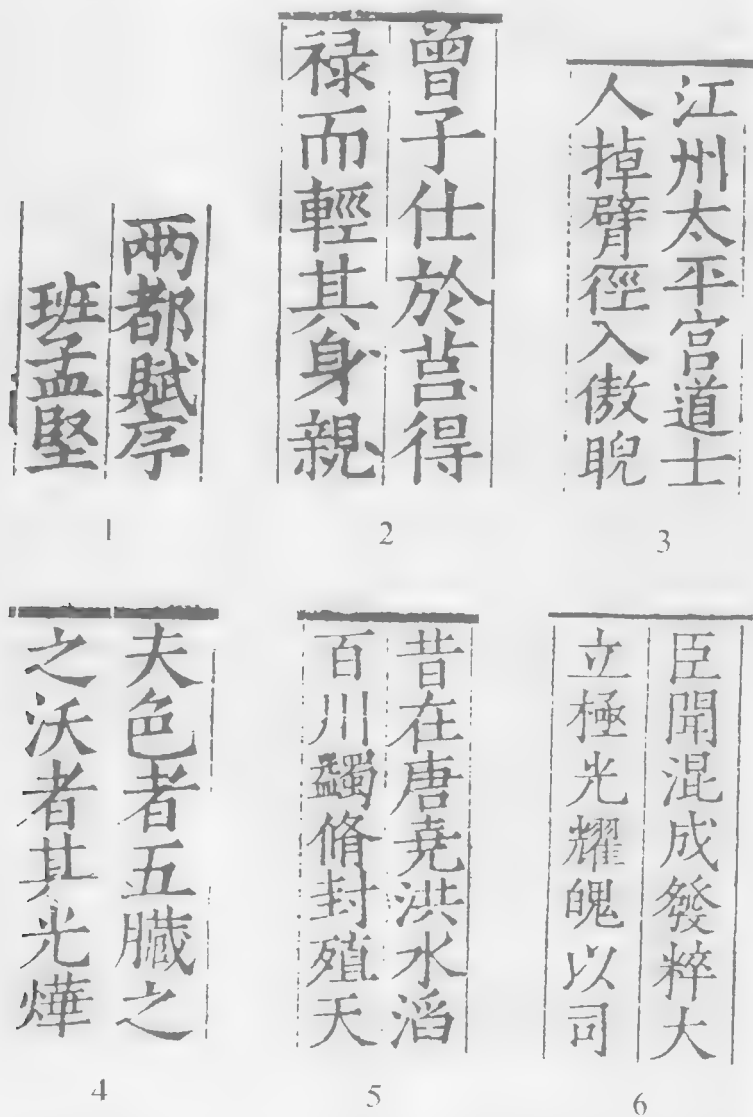 兩都賦序
班孟堅
1
曾子仕於莒得
禄而輕其身親
2
江州太平宫道士
人掉臂徑入傲睨
3
夫色者五臓之
之沃者其光燁
4
昔在唐尭洪水滔
百川蠲脩封殖天
5
臣聞混成發粹大
立極光耀魄以司
6